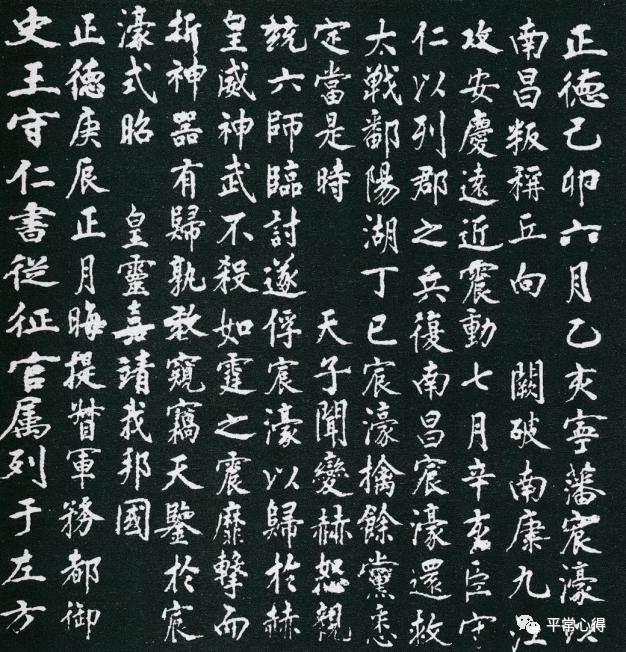 正德己卯六月乙亥寧藩宸濠以
南昌叛稱兵向 闕破南康九江
攻安慶遠近震動七月辛亥臣守
仁以列郡之兵復南昌宸濠還救
大戰鄱陽湖丁巳宸濠擒餘黨悉
定當是時 天子聞變赫怒親
統六師臨討遂俘宸濠以歸於赫
皇威神武不殺如霆之震靡擊而
折神器有歸孰敢窺竊天鑒於宸
濠式昭 皇靈嘉靖我邦國
正德庚辰正月晦提督軍務都御
史王守仁書從征官属列于左方
平常心得